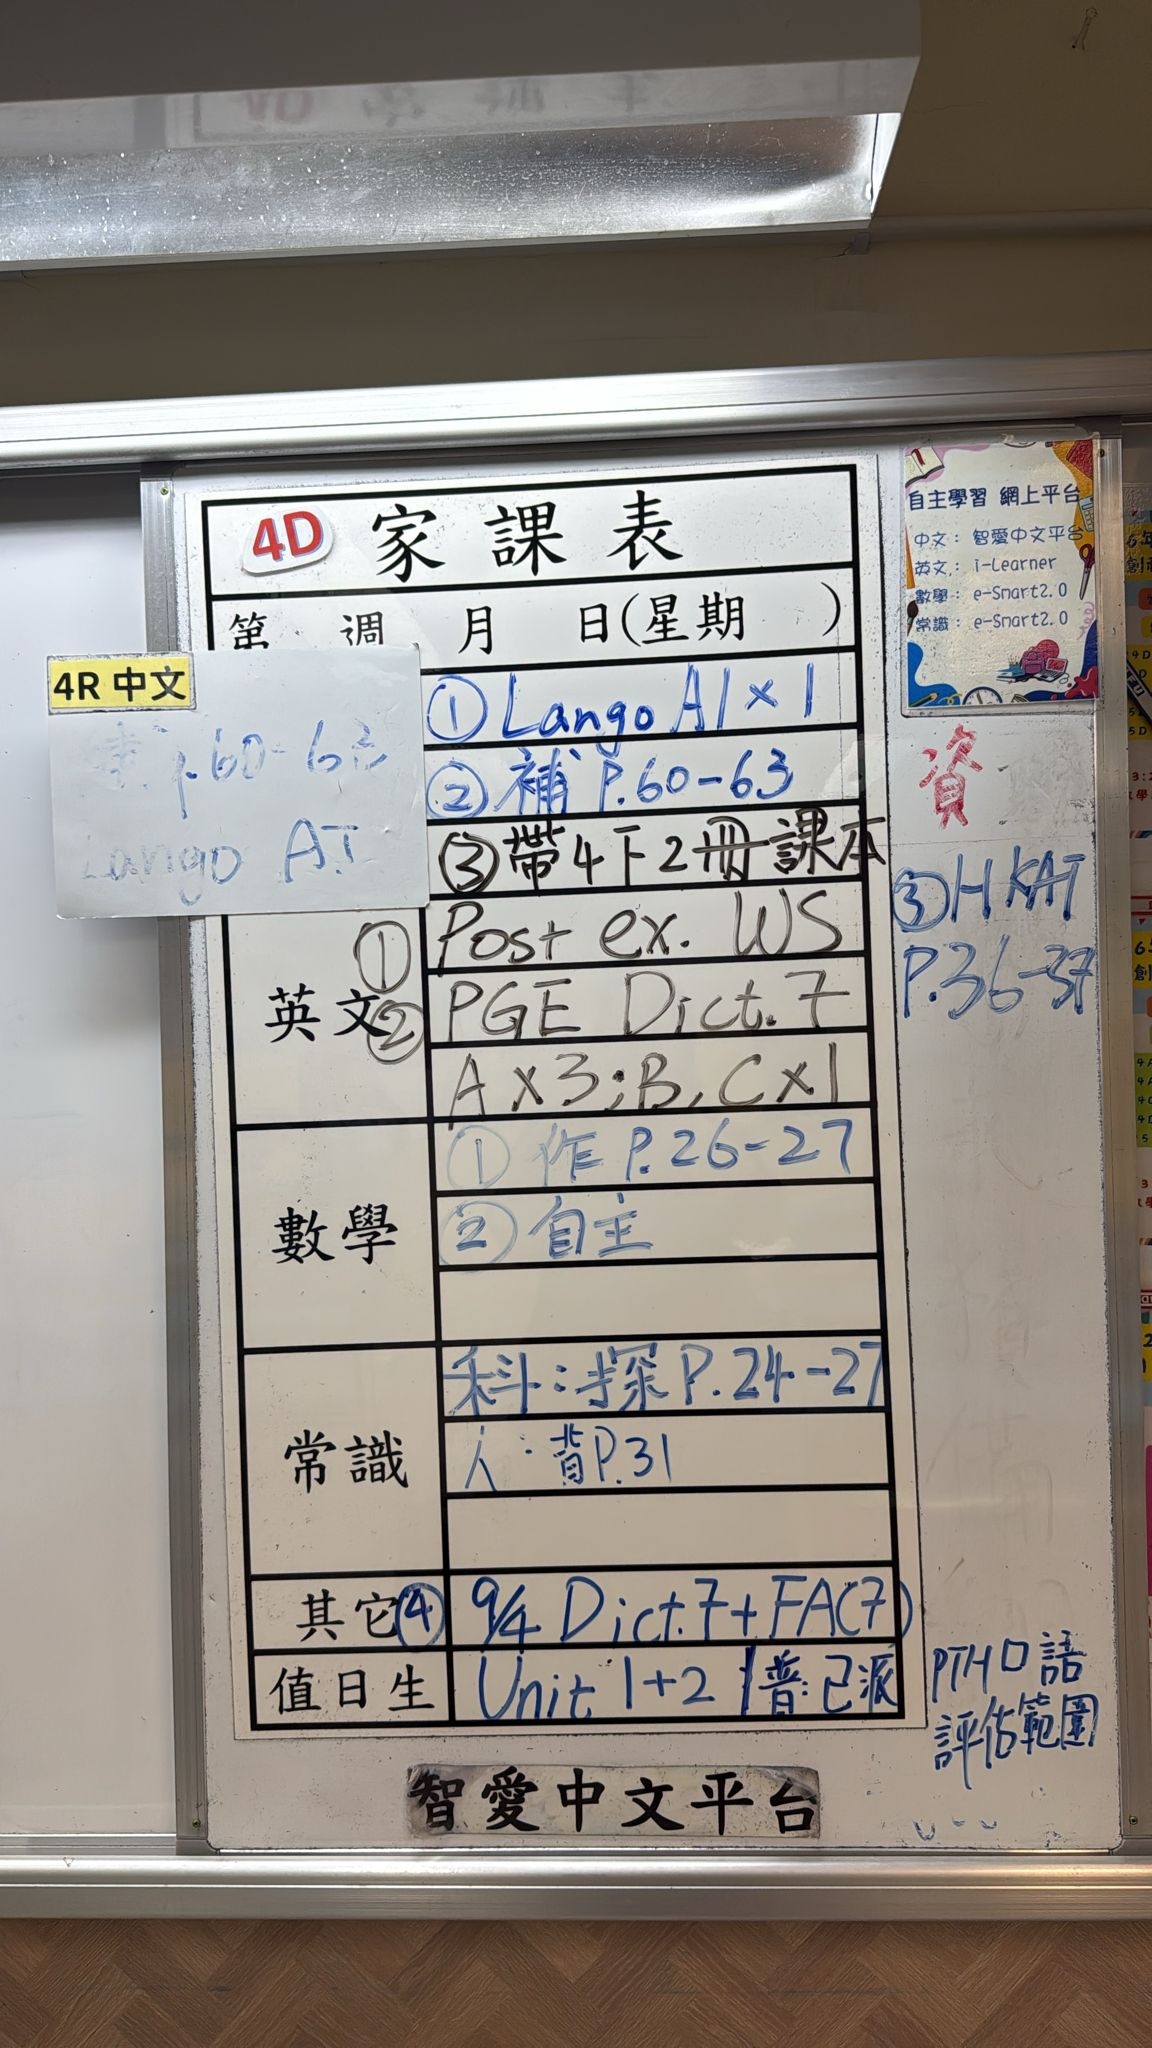 4D 家課表
第 週 月 日(星期 )
4R 中文
P.60-63
Lango AI
① Lango AI × 1
② 補 P.60-63
③ 帶 4下 2冊課本
英文
① Post ex. WS
② PGE Dict. 7
A × 3 ; B, C × 1
數學
① 作 P.26-27
② 自主
常識
科：探 P.24-27
人：背 P.31
其它
④ 9/4 Dict.7 + FA(7)
值日生
Unit 1+2 | 普：已派
智愛中文平台
自主學習 網上平台
中文： 智愛中文平台
英文： i-Learner
數學： e-Smart2.0
常識： e-Smart2.0
資
③ HKAT
P.36-37
PTH口語
評估範圍